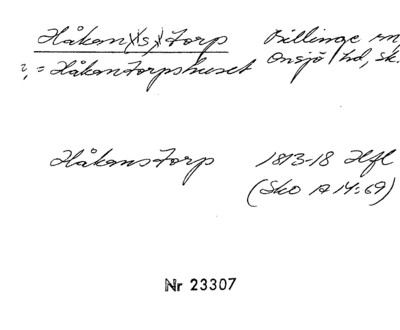 Håkan(s)torp Billinge sn,
?, = Håkantorpshuset Onsjö hd, Sk.
Håkanstorp 1813-18 Hfl
(Sko A 14:69)
Nr 23307